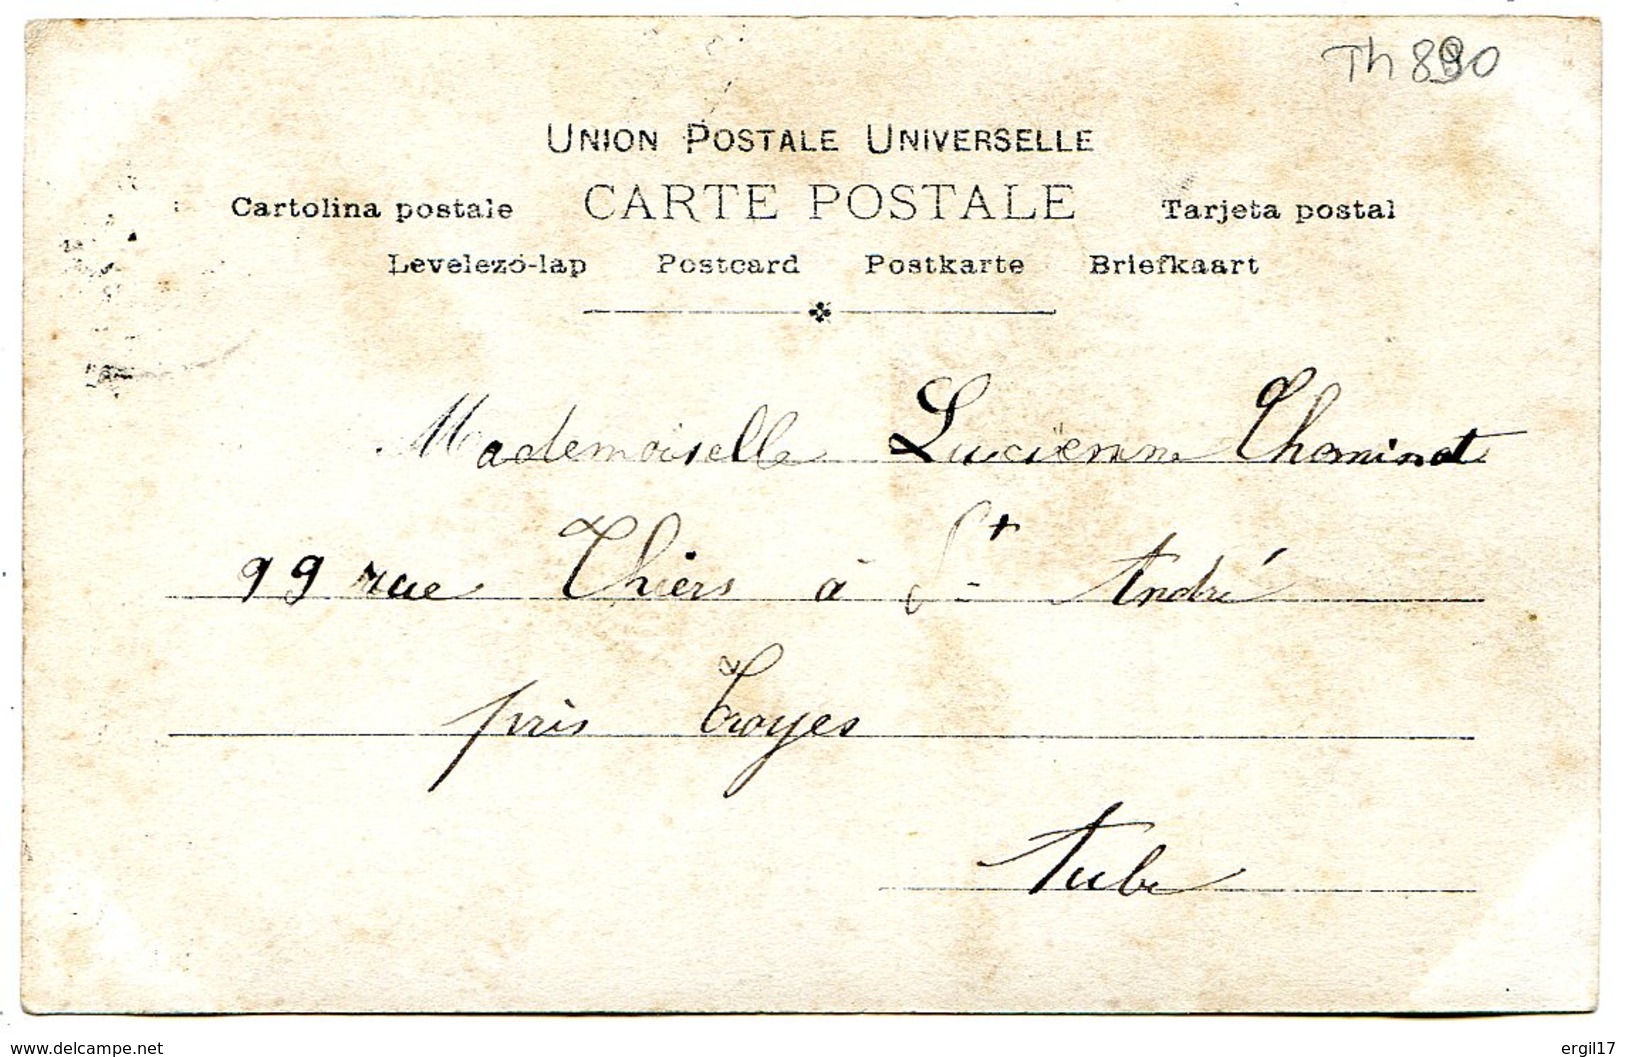 Th 890
UNION POSTALE UNIVERSELLE
Cartolina postale CARTE POSTALE Tarjeta postal
Levelező-lap Postcard Postkarte Briefkaart
Mademoiselle Lucienne Thominot
99 rue Thiers à St André
près Troyes
Aube
www.delcampe.net
ergil17